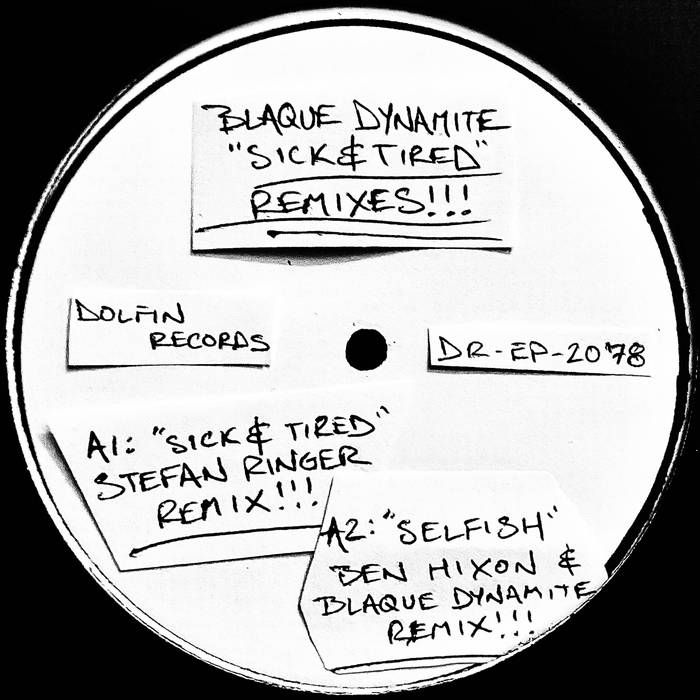 BLAQUE DYNAMITE
"SICK & TIRED"
REMIXES!!!
DOLFIN
RECORDS
DR-EP-2078
A1: "SICK & TIRED"
STEFAN RINGER
REMIX!!!
A2: "SELFISH"
BEN HIXON &
BLAQUE DYNAMITE
REMIX!!!